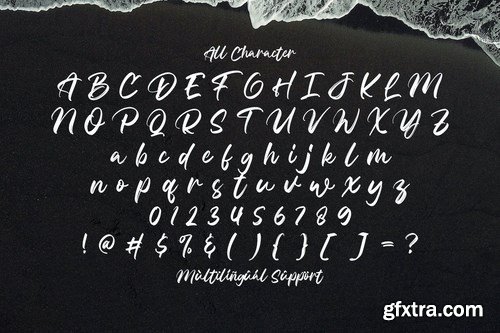 All Character
A B C D E F G H I J K L M
N O P Q R S T U V W X Y Z
a b c d e f g h i j k l m
n o p q r s t u v w x y z
0 1 2 3 4 5 6 7 8 9
! @ # $ % & ( ) { } [ ] = ?
Mùltilingúhl Sùppört
gfxtra.com